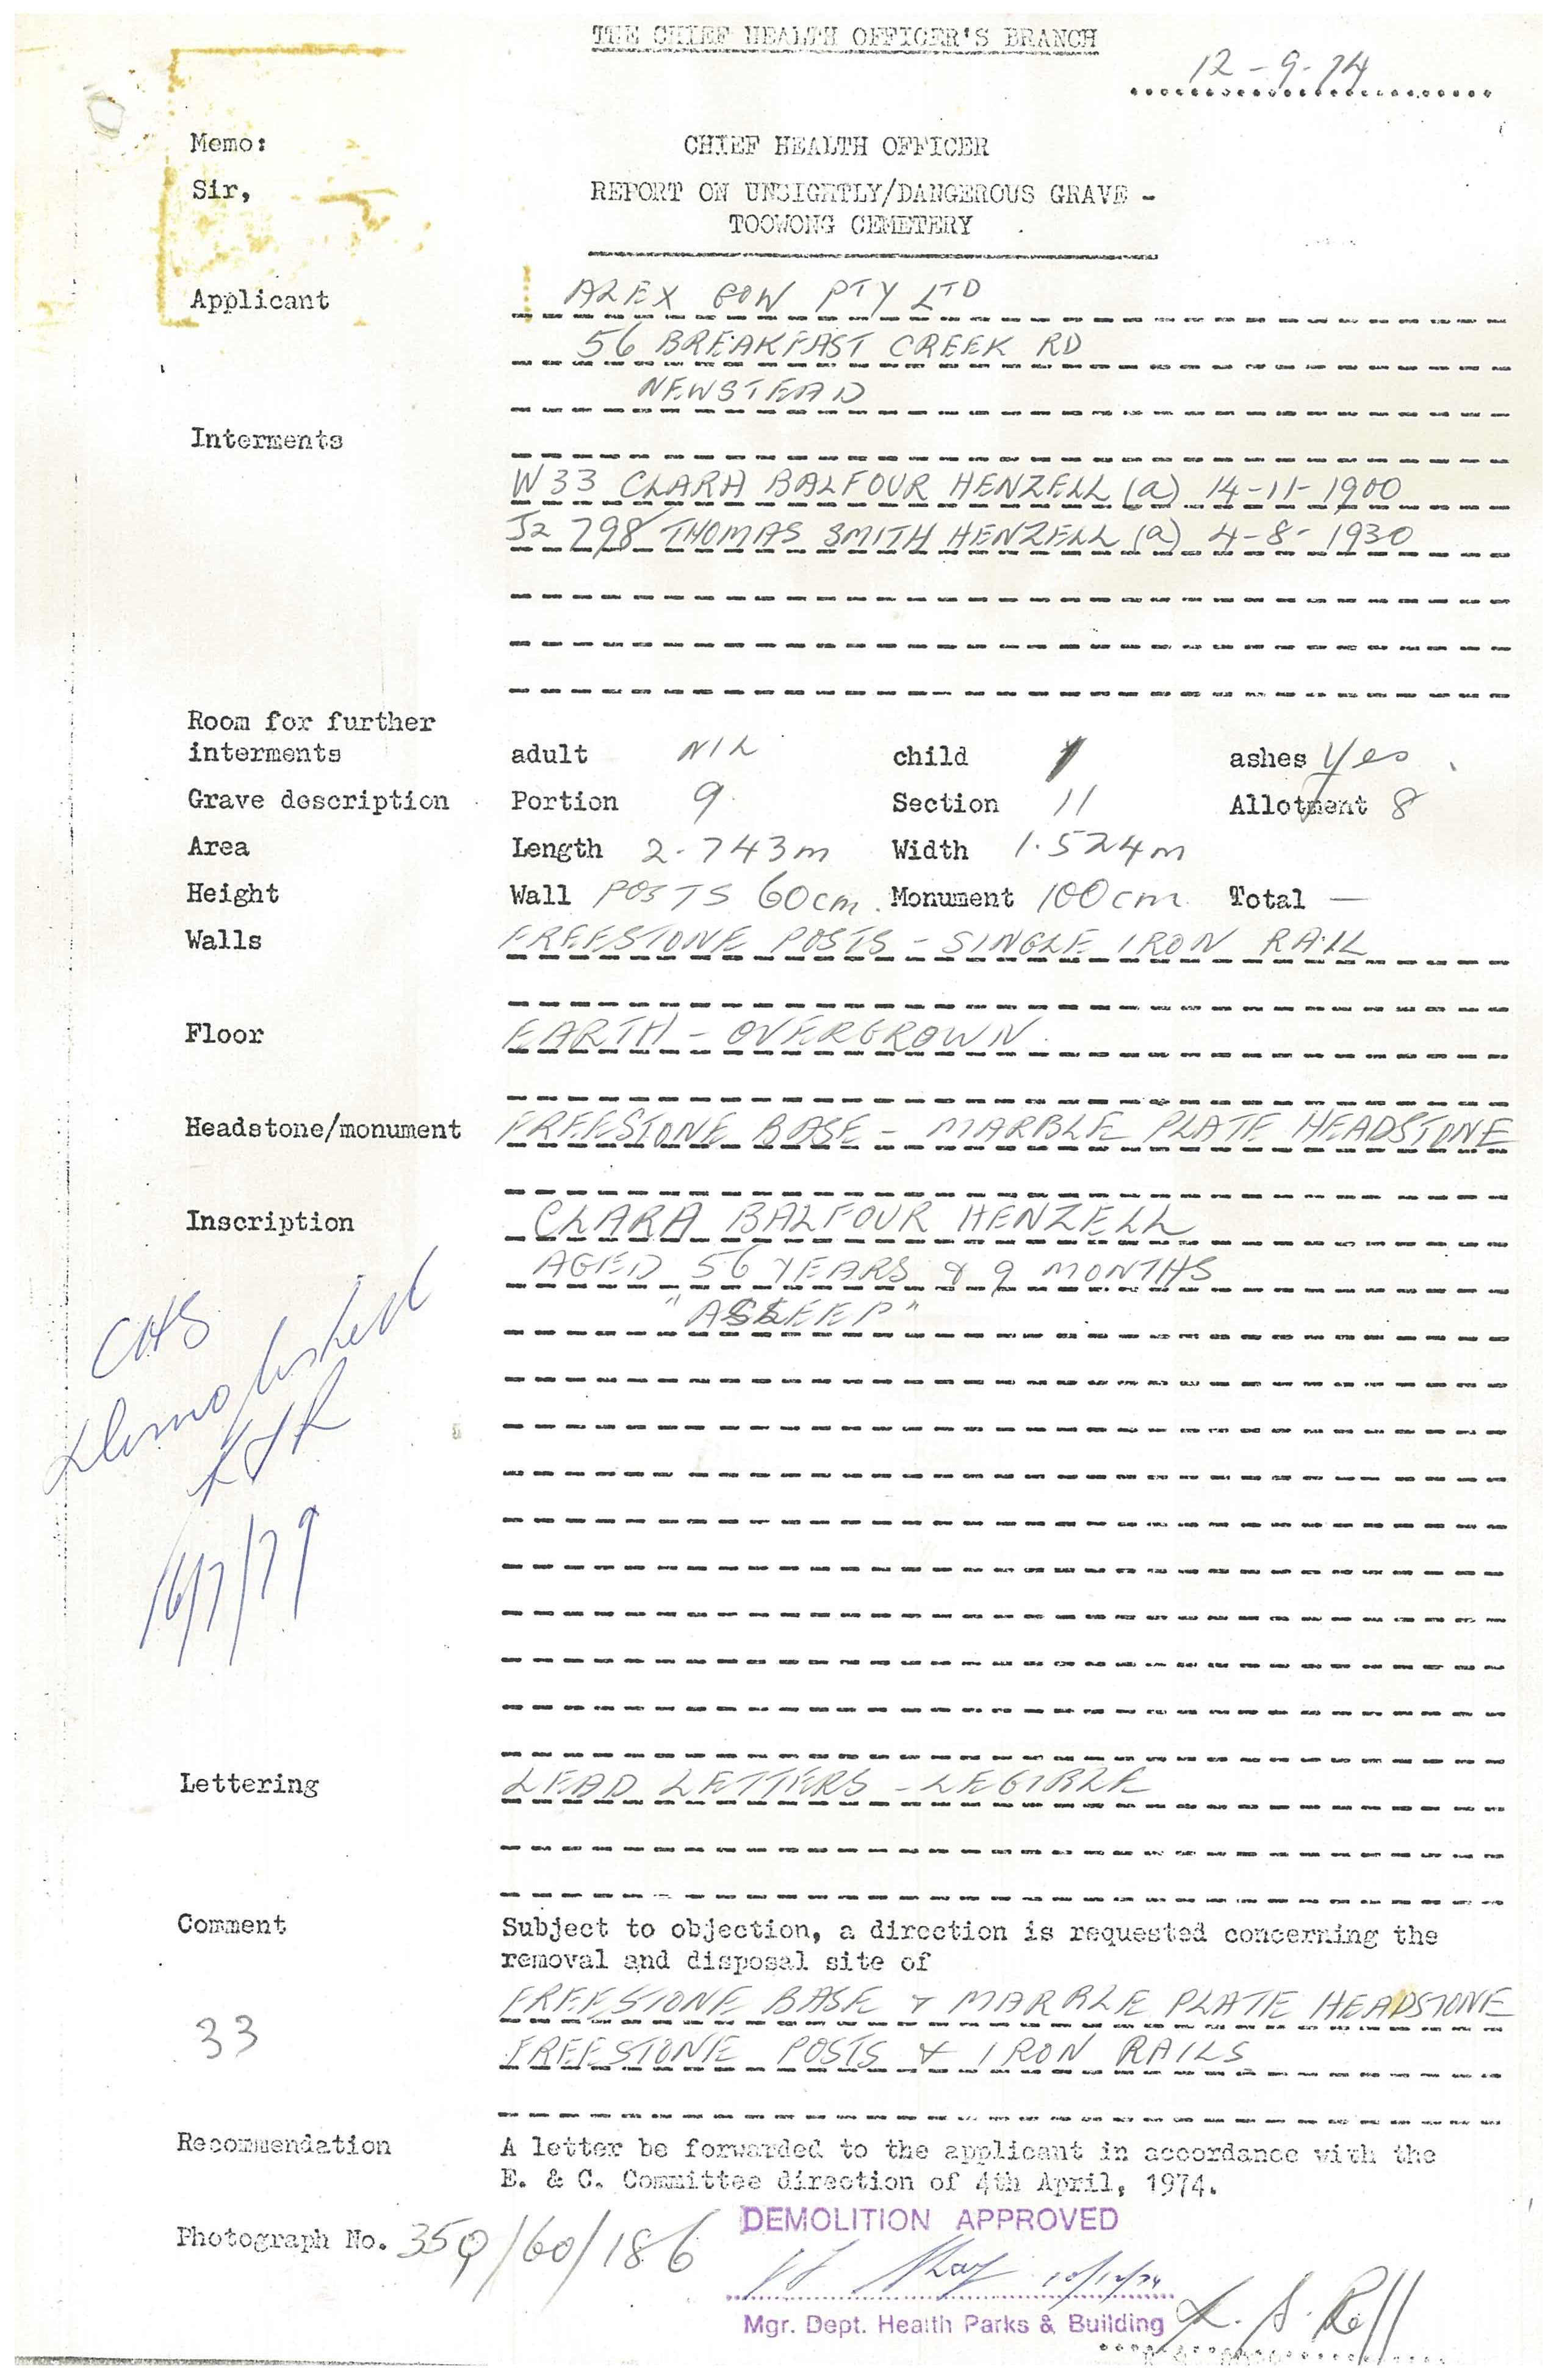 THE CHIEF HEALTH OFFICER'S BRANCH
12-9-74
Memo:
CHIEF HEALTH OFFICER
Sir,
REPORT ON UNSIGHTLY/DANGEROUS GRAVE -
TOOWONG CEMETERY
Applicant ALEX GOW PTY LTD
56 BREAKFAST CREEK RD
NEWSTEAD
Interments
W33 CLARA BALFOUR HENZELL (a) 14-11-1900
J2 798 THOMAS SMITH HENZELL (a) 4-8-1930
Room for further
interments adult NIL child 1 ashes Yes
Grave description Portion 9 Section 11 Allotment 8
Area Length 2.743m Width 1.524m
Height Wall POSTS 60cm. Monument 100cm Total —
Walls FREESTONE POSTS - SINGLE IRON RAIL
Floor EARTH - OVERGROWN
Headstone/monument FREESTONE BASE - MARBLE PLATE HEADSTONE
Inscription CLARA BALFOUR HENZELL
AGED 56 YEARS & 9 MONTHS
"ASLEEP"
Demolished
16/7/79
Lettering LEAD LETTERS - LEGIBLE
Comment Subject to objection, a direction is requested concerning the
removal and disposal site of
FREESTONE BASE & MARBLE PLATE HEADSTONE
33
FREESTONE POSTS & IRON RAILS
Recommendation A letter be forwarded to the applicant in accordance with the
E. & C. Committee direction of 4th April, 1974.
DEMOLITION APPROVED
Photograph No. 359/60/186
Mgr. Dept. Health Parks & Building